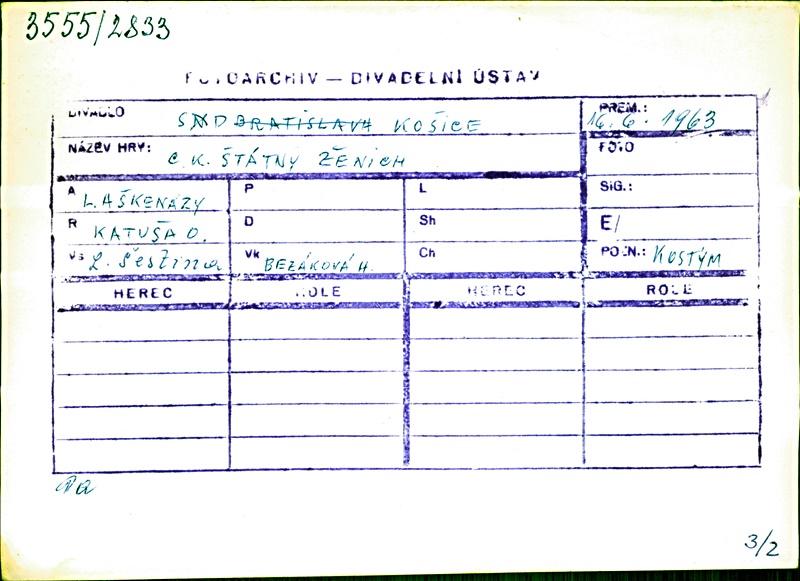 3555/2833
FOTOARCHIV — DIVADELNÍ ÚSTAV
DIVADLO SND BRATISLAVA KOŠICE
PREM.: 16. 6. 1963
NÁZEV HRY: C. K. ŠTÁTNY ŽENÍCH
FOTO
A L. AŠKENÁZY
P
L
SIG.:
R KATUŠA O.
D
Sh
E/
Vs L. Šestina
Vk BEZÁKOVÁ H.
Ch
POZN.: KOSTÝM
HEREC ROLE HEREC ROLE
3/2